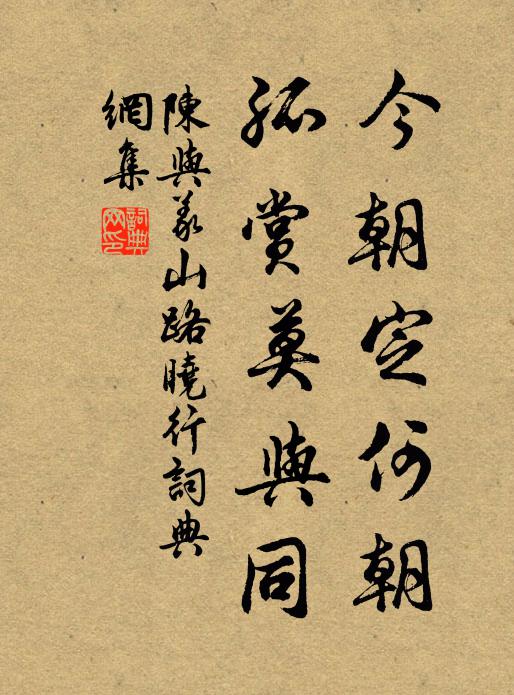 今朝定何朝
孤賞莫與同
陳與義山路曉行詞典
網集
詞典
网印